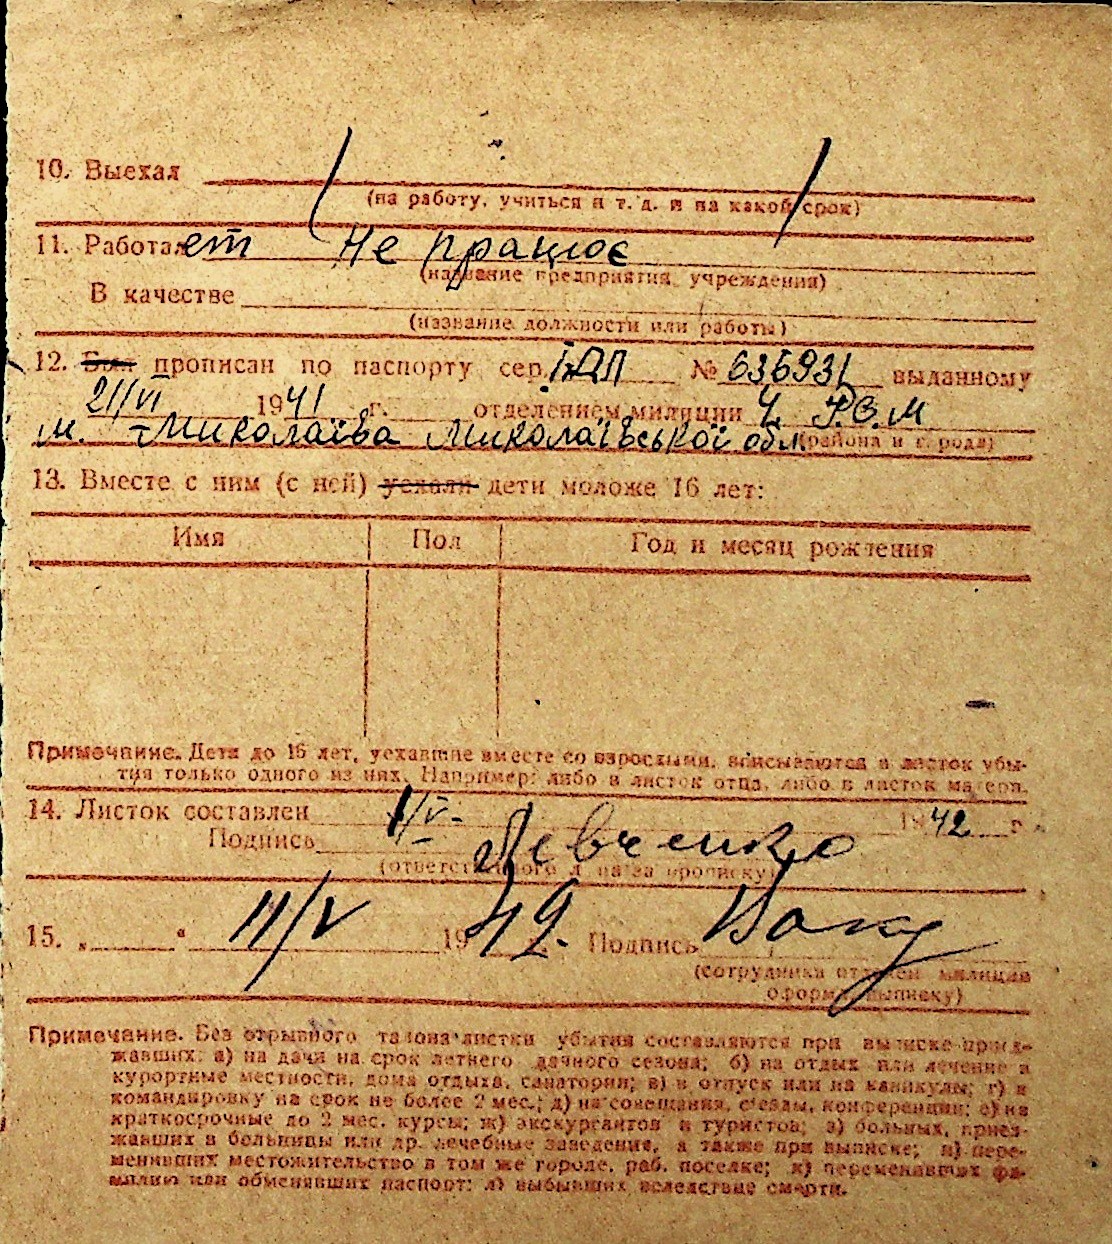 10. Выехал
(на работу, учиться и т. д. и на какой срок)
11. Работает Не працює
(название предприятия, учреждения)
В качестве
(название должности или работы)
12. Был прописан по паспорту сер. № 636931 выданному
21/VI 1941 г. отделением милиции 4 Р.В.М
м. Миколаїва Миколаївської обл. (района и города)
13. Вместе с ним (с ней) уехали дети моложе 16 лет:
Имя Пол Год и месяц рождения
Примечание. Дети до 16 лет, уехавшие вместе со взрослыми, вписываются в листок убы-
тия только одного из них. Например: либо в листок отца, либо в листок матери.
14. Листок составлен 1/V- 1942 г.
Подпись Левченко
(ответственного л за прописку)
15. „ “ 11/V 1942. Подпись
(сотрудника отделен милиции
оформ выписку)
Примечание. Без отрывного талона листки убытия составляются при выписке приез-
жавших: а) на дачи на срок летнего дачного сезона; б) на отдых или лечение в
курортные местности, дома отдыха, санатории; в) в отпуск или на каникулы; г) в
командировку на срок не более 2 мес.; д) на совещания, съезды, конференции; е) на
краткосрочные до 2 мес. курсы; ж) экскурсантов и туристов; з) больных, приез-
жавших в больницы или др. лечебные заведение, а также при выписке; и) пере-
менивших местожительство в том же городе, раб. поселке; к) переменивших фа-
милию или обменявших паспорт; л) выбывших вследствие смерти.